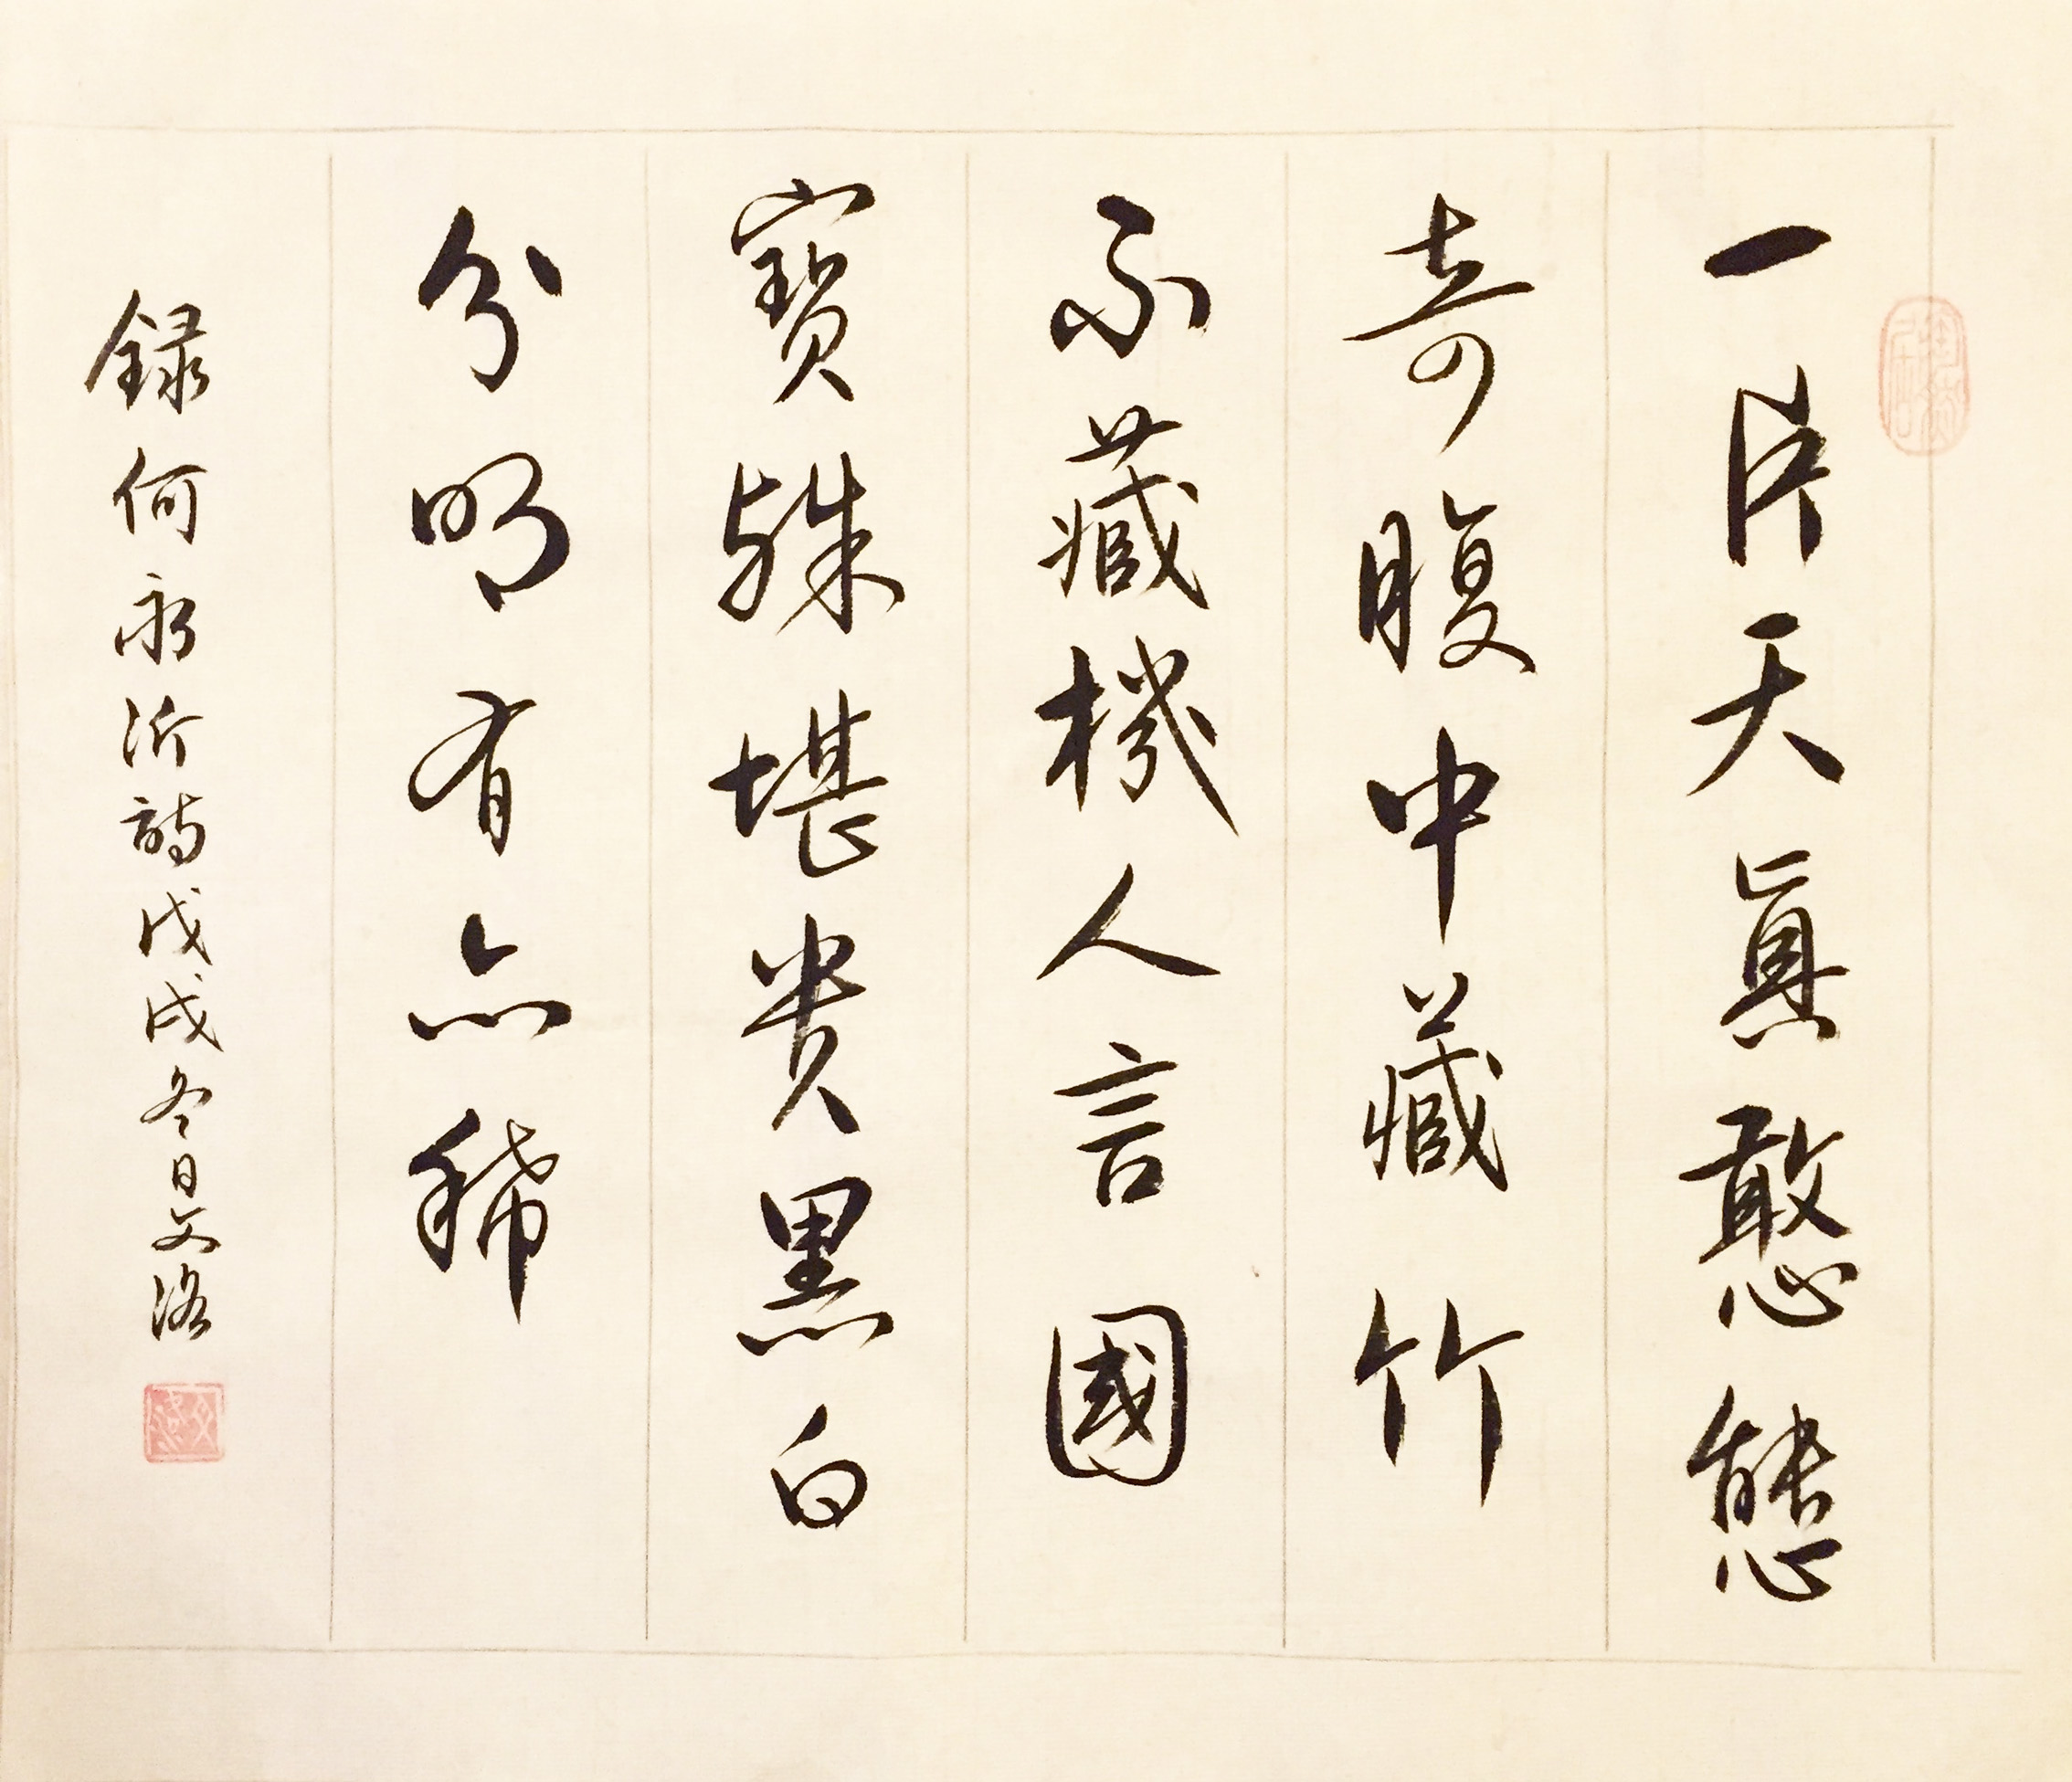 一片天真憨態
奇腹中藏竹
不藏機人言國
寶殊堪貴黑白
分明有亦稀
録何永沂詩戊戌冬日文洛